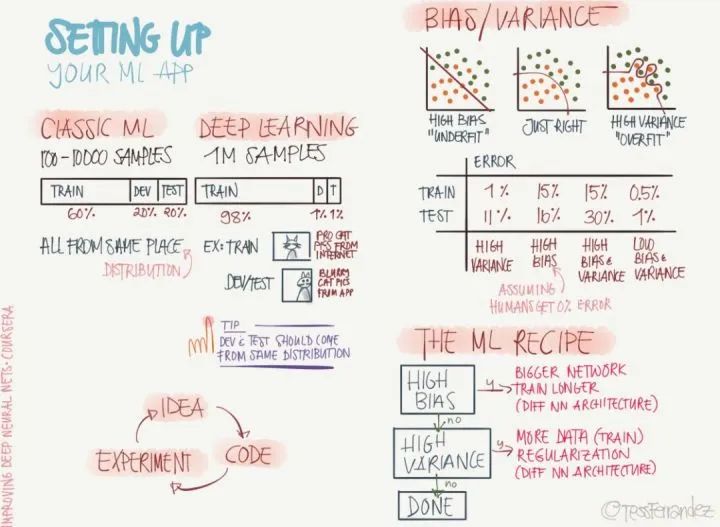 SETTING UP
YOUR ML APP
CLASSIC ML
100-10000 SAMPLES
TRAIN DEV TEST
60% 20% 20%
ALL FROM SAME PLACE
DISTRIBUTION
DEEP LEARNING
1M SAMPLES
TRAIN D T
98% 1% 1%
EX: TRAIN
PRO CAT
PICS FROM
INTERNET
DEV/TEST
BLURRY
CAT PICS
FROM APP
TIP
DEV & TEST SHOULD COME
FROM SAME DISTRIBUTION
IDEA
CODE
EXPERIMENT
IMPROVING DEEP NEURAL NETS · COURSERA
BIAS/VARIANCE
HIGH BIAS
"UNDERFIT"
JUST RIGHT
HIGH VARIANCE
"OVERFIT"
ERROR
TRAIN 1% 15% 15% 0.5%
TEST 11% 16% 30% 1%
HIGH
VARIANCE
HIGH
BIAS
HIGH
BIAS &
VARIANCE
LOW
BIAS &
VARIANCE
ASSUMING
HUMANS GET 0% ERROR
THE ML RECIPE
HIGH
BIAS
Y
BIGGER NETWORK
TRAIN LONGER
(DIFF NN ARCHITECTURE)
no
HIGH
VARIANCE
Y
MORE DATA (TRAIN)
REGULARIZATION
(DIFF NN ARCHITECTURE)
no
DONE
@TessFerrandez